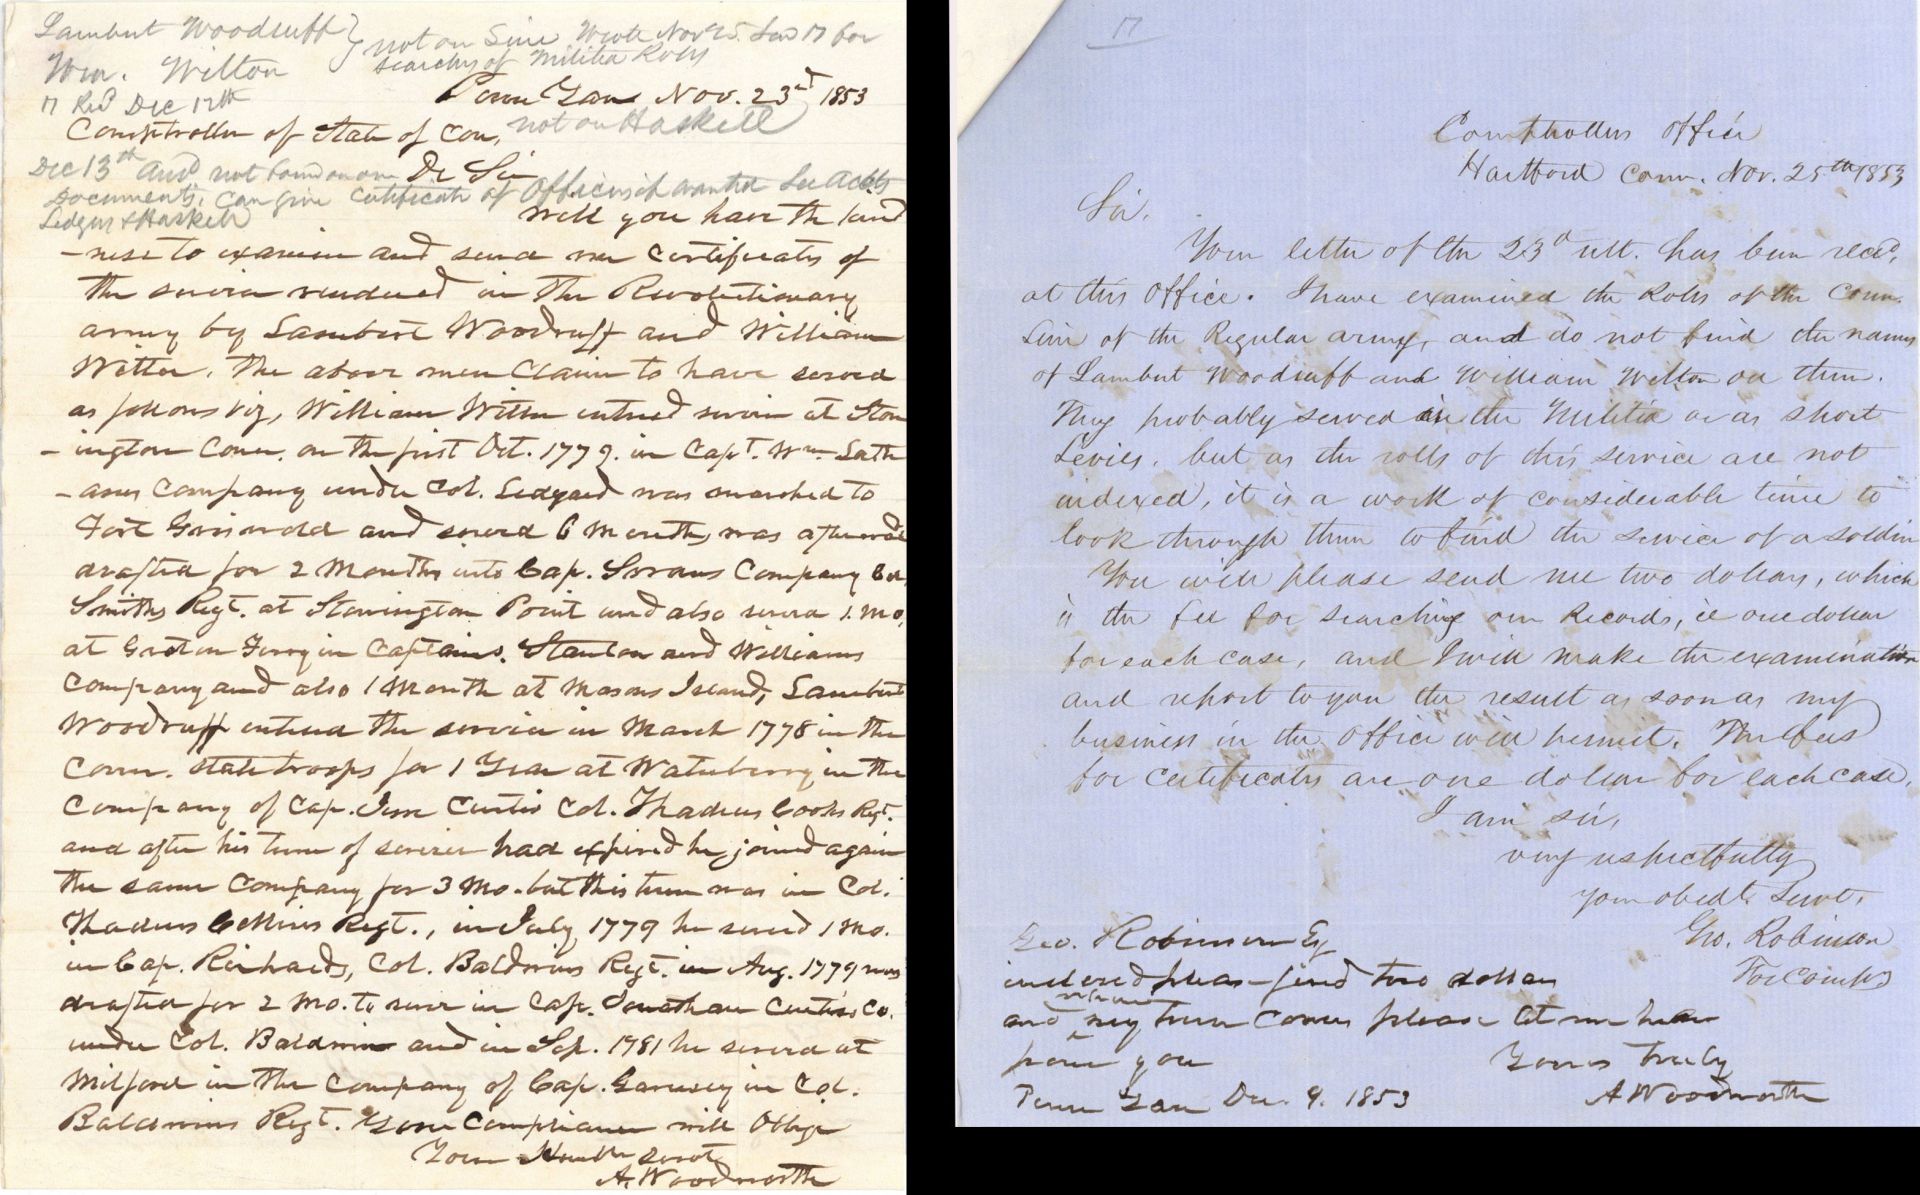 Lambert Woodruff
Wm. Wilton
not on Line Wrote Nov 25. for
searches of Militia Rolls
Recd Dec 12th
Penn Yan Nov. 23d 1853
Comptroller of State of Con,
not on Haskell
Dec 13th and not found on our
Dr Sir
Documents. Can give Certificate of Officers if wanted See
Ledger & Haskell
Will you have the kind
-ness to examine and send me Certificates of
the service rendered in the Revolutionary
army by Lambert Woodruff and William
Witter. The above men Claim to have served
as follows viz, William Witter entered service at Ston
-ington Conn. on the first Oct. 1779. in Capt. Wm. Lath
-ams Company under Col. Ledyard was marched to
Fort Griswold and served 6 Months, was afterward
drafted for 2 Months into Cap. Swans Company Col.
Smiths Regt. at Stonington Point and also served 1. Mo,
at Groton Ferry in Captains. Stanton and Williams
Company and also 1 Month at Masons Island, Lambert
Woodruff entered the service in March 1778 in the
Conn. State troops for 1 Year at Waterberry in the
Company of Cap. Jesse Curtis Col. Thadeus Cooks Regt.
and after his term of service had expired he joined again
the same Company for 3 Mo. but this term was in Col.
Thadeus Regt., in July 1779 he served 1 Mo.
in Cap. Richards, Col. Baldwins Regt. in Aug. 1779 was
drafted for 2 Mo. to serve in Cap. Jonathan Curtiss Co.
under Col. Baldwin and in Sep. 1781 he served at
Milford in the Company of Cap. Garnsey in Col.
Baldwins Regt. Your Compliance will Oblige
Your Humble servt
A. Woodworth
17
Comptrollers Office
Hartford Conn. Nov. 25th 1853
Sir.
Your letter of the 23d ult. has been recd,
at this Office. I have examined the Rolls of the Conn.
Line of the Regular army, and do not find the names
of Lambert Woodruff and William Wilton on them.
They probably served in the Militia or as short
Levies. but as the rolls of this service are not
indexed, it is a work of considerable time to
look through them to find the service of a soldier
You will please send me two dollars, which
is the fee for searching our Records, ie one dollar
for each case, and I will make the examination
and report to you the result as soon as my
business in the Office will permit. The fees
for certificates are one dollar for each case,
I am sir,
very respectfully
your obedt. Servt.
Geo. Robinson
For Compt
Geo. Robinson Esq
inclosed please find two dollars
and when my turn comes please let me hear
from you
Yours truly
Penn Yan Dec. 9. 1853
A Woodworth